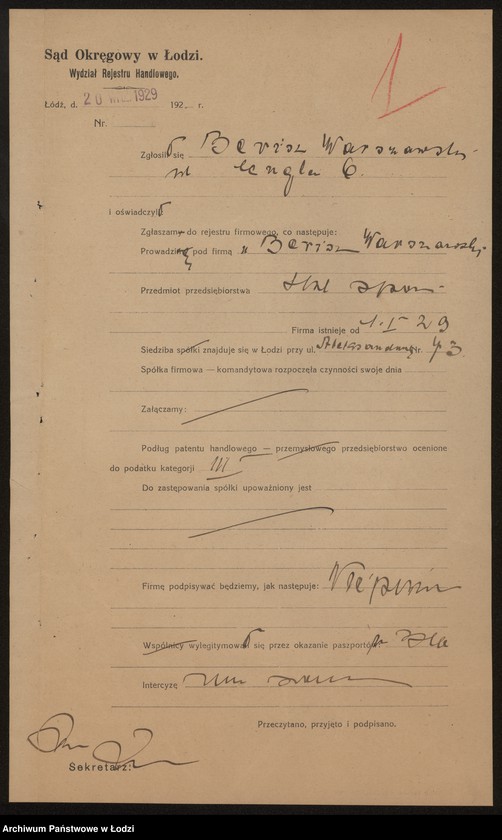 Sąd Okręgowy w Łodzi.
Wydział Rejestru Handlowego.
Łódź, d. 20 1929 192 r.
Nr.
1
Zgłosił się Berisz Warszawski
i oświadczył
Zgłaszam do rejestru firmowego, co następuje:
Prowadzi pod firmą „ Berisz Warszawski
Przedmiot przedsiębiorstwa
Firma istnieje od 1.I 29
Siedziba spółki znajduje się w Łodzi przy ul. Nr. 43
Spółka firmowa — komandytowa rozpoczęła czynności swoje dnia
Załączamy:
Podług patentu handlowego — przemysłowego przedsiębiorstwo ocenione
do podatku kategorji III
Do zastępowania spółki upoważniony jest
Firmę podpisywać będziemy, jak następuje:
Wspólnicy wylegitymował się przez okazanie paszportów:
Intercyzę
Przeczytano, przyjęto i podpisano.
Sekretarz:
Archiwum Państwowe w Łodzi